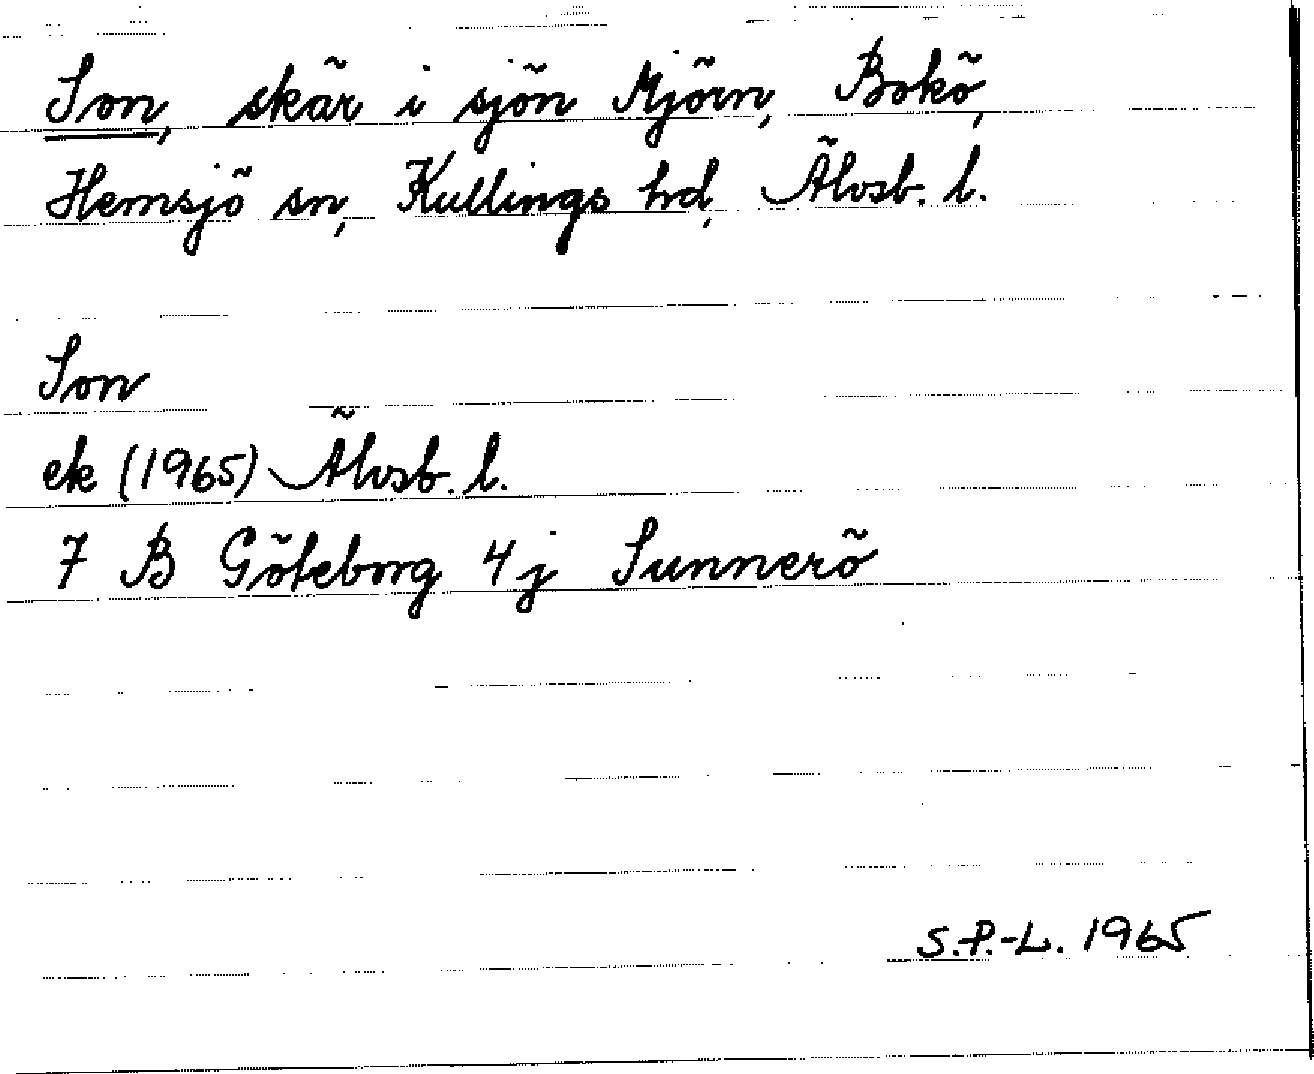 Son, skär i sjön Mjörn, Bokö,
Hemsjö sn, Kullings hd, Älvsb. l.
Son
ek (1965) Älvsb. l.
7 B Göteborg 4j Sunnerö
S.P.-L. 1965